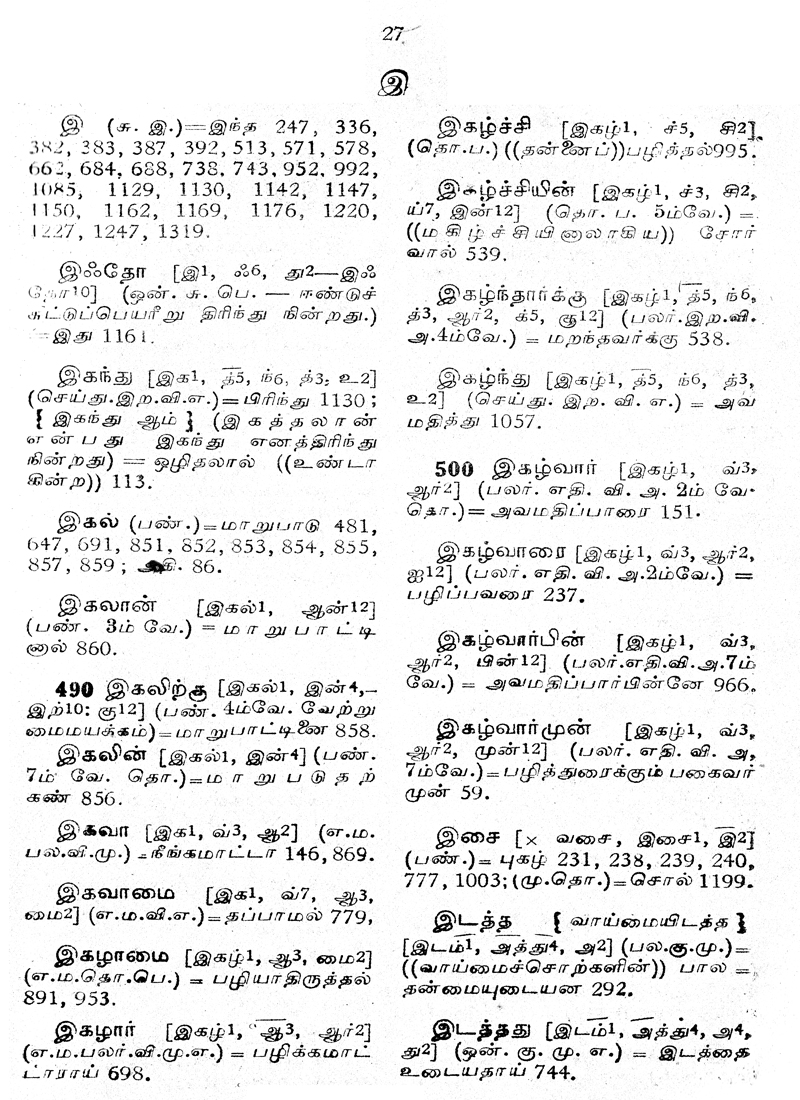 27
இ
இ (சு. இ.)=இந்த 247, 336,
382, 383, 387, 392, 513, 571, 578,
662, 684, 688, 738, 743, 952, 992,
1085, 1129, 1130, 1142, 1147,
1150, 1162, 1169, 1176, 1220,
1227, 1247, 1319.
இஃதோ [இ1, ஃ6, து2—இஃ
தோ10] (ஒன். சு. பெ. — ஈண்டுச்
சுட்டுப்பெயரீறு திரிந்து நின்றது.)
=இது 1161.
இகந்து [இக1, த்5, ந்6, த்3, உ2]
(செய்து.இற.வி.எ.)=பிரிந்து 1130;
{ இகந்து ஆம் } (இகத்தலான்
என்பது இகந்து எனத்திரிந்து
நின்றது) = ஒழிதலால் ((உண்டா
கின்ற)) 113.
இகல் (பண்.)=மாறுபாடு 481,
647, 691, 851, 852, 853, 854, 855,
857, 859; கி. 86.
இகலான் [இகல்1, ஆன்12]
(பண். 3ம் வே.) = மாறுபாட்டி
னால் 860.
490 இகலிற்கு [இகல்1, இன்4,–
இற்10: கு12] (பண். 4ம்வே. வேற்று
மைமயக்கம்)=மாறுபாட்டினை 858.
இகலின் [இகல்1, இன்4] (பண்.
7ம் வே. தொ.)=மாறுபடுதற்
கண் 856.
இகவா [இக1, வ்3, ஆ2] (எ.ம.
பல.வி.மு.) =நீங்கமாட்டா 146, 869.
இகவாமை [இக1, வ்7, ஆ3,
மை2] (எ.ம.வி.எ.)=தப்பாமல் 779,
இகழாமை [இகழ்1, ஆ3, மை2]
(எ.ம.தொ.பெ.) = பழியாதிருத்தல்
891, 953.
இகழார் [இகழ்1, ஆ3, ஆர்2]
(எ.ம.பலர்.வி.மு.எ.) = பழிக்கமாட்
ட்ாராய் 698.
இகழ்ச்சி [இகழ்1, ச்5, சி2]
(தொ.ப.) ((தன்னைப்))பழித்தல்995.
இகழ்ச்சியின் [இகழ்1, ச்3, சி2,
ய்7, இன்12] (தொ. ப. 5ம்வே.) =
((மகிழ்ச்சியினாலாகிய)) சோர்
வால் 539.
இகழ்ந்தார்க்கு [இகழ்1, த்5, ந்6,
த்3, ஆர்2, க்5, கு12] (பலர்.இற.வி.
அ.4ம்வே.) = மறந்தவர்க்கு 538.
இகழ்ந்து [இகழ்1, த்5, ந்6, த்3,
உ2] (செய்து. இற. வி. எ.) = அவ
மதித்து 1057.
500 இகழ்வார் [இகழ்1, வ்3,
ஆர்2] (பலர். எதி. வி. அ. 2ம் வே.
தொ.)=அவமதிப்பாரை 151.
இகழ்வாரை [இகழ்1, வ்3, ஆர்2,
ஐ12] (பலர். எதி. வி. அ.2ம்வே.) =
பழிப்பவரை 237.
இகழ்வார்பின் [இகழ்1, வ்3,
ஆர்2, பின்12] (பலர்.எதி.வி.அ.7ம்
வே.) = அவமதிப்பார்பின்னே 966.
இகழ்வார்முன் [இகழ்1, வ்3,
ஆர்2, முன்12] (பலர். எதி. வி. அ,
7ம்வே.)=பழித்துரைக்கும் பகைவர்
முன் 59.
இசை [× வசை, இசை1, இ2]
(பண்.)= புகழ் 231, 238, 239, 240,
777, 1003; (மு.தொ.)=சொல் 1199.
இடத்த { வாய்மையிடத்த }
[இடம்1, அத்து4, அ2] (பல.கு.மு.)=
((வாய்மைச்சொற்களின்)) பால =
தன்மையுடையன 292.
இடத்தது [இடம்1, அத்து4, அ4,
து2] (ஒன். கு. மு. எ.) = இடத்தை
உடையதாய் 744.